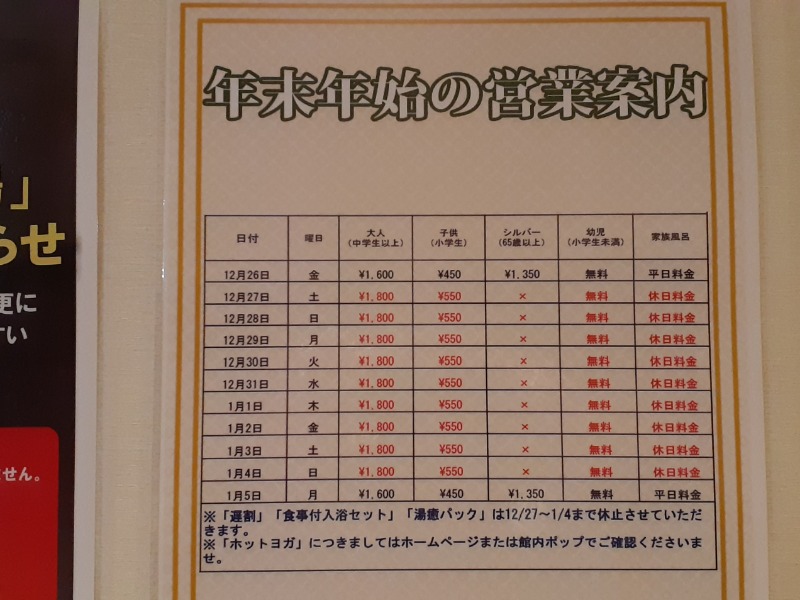 年末年始の営業案内
日付 曜日 大人 (中学生以上) 子供 (小学生) シルバー (65歳以上) 幼児 (小学生未満) 家族風呂
12月26日 金 ¥1,600 ¥450 ¥1,350 無料 平日料金
12月27日 土 ¥1,800 ¥550 × 無料 休日料金
12月28日 日 ¥1,800 ¥550 × 無料 休日料金
12月29日 月 ¥1,800 ¥550 × 無料 休日料金
12月30日 火 ¥1,800 ¥550 × 無料 休日料金
12月31日 水 ¥1,800 ¥550 × 無料 休日料金
1月1日 木 ¥1,800 ¥550 × 無料 休日料金
1月2日 金 ¥1,800 ¥550 × 無料 休日料金
1月3日 土 ¥1,800 ¥550 × 無料 休日料金
1月4日 日 ¥1,800 ¥550 × 無料 休日料金
1月5日 月 ¥1,600 ¥450 ¥1,350 無料 平日料金
※「遅割」「食事付入浴セット」「湯癒パック」は12/27～1/4まで休止させていただ
きます。
※「ホットヨガ」につきましてはホームページまたは館内ポップでご確認くださいま
せ。
」
らせ
更に
すい
せん。